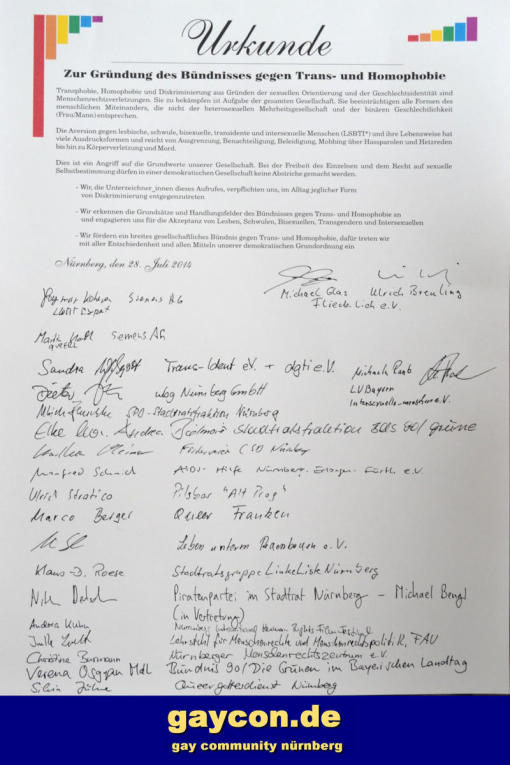 Urkunde
Zur Gründung des Bündnisses gegen Trans- und Homophobie
Transphobie, Homophobie und Diskriminierung aus Gründen der sexuellen Orientierung und der Geschlechtsidentität sind
Menschenrechtsverletzungen. Sie zu bekämpfen ist Aufgabe der gesamten Gesellschaft. Sie beeinträchtigen alle Formen des
menschlichen Miteinanders, die nicht der heterosexuellen Mehrheitsgesellschaft und der binären Geschlechtlichkeit
(Frau/Mann) entsprechen.
Die Aversion gegen lesbische, schwule, bisexuelle, transidente und intersexuelle Menschen (LSBTI*) und ihre Lebensweise hat
viele Ausdrucksformen und reicht von Ausgrenzung, Benachteiligung, Beleidigung, Mobbing über Hassparolen und Hetzreden
bis hin zu Körperverletzung und Mord.
Dies ist ein Angriff auf die Grundwerte unserer Gesellschaft. Bei der Freiheit des Einzelnen und dem Recht auf sexuelle
Selbstbestimmung dürfen in einer demokratischen Gesellschaft keine Abstriche gemacht werden.
- Wir, die Unterzeichner_innen dieses Aufrufes, verpflichten uns, im Alltag jeglicher Form
von Diskriminierung entgegenzutreten
- Wir erkennen die Grundsätze und Handlungsfelder des Bündnisses gegen Trans- und Homophobie an
und engagieren uns für die Akzeptanz von Lesben, Schwulen, Bisexuellen, Transgendern und Intersexuellen
- Wir fördern ein breites gesellschaftliches Bündnis gegen Trans- und Homophobie, dafür treten wir
mit aller Entschiedenheit und allen Mitteln unserer demokratischen Grundordnung ein
Nürnberg, den 28. Juli 2014
Michael Glas Ulrich Breuling
Fliederlich e.V.
Siemens AG
Siemens AG
Sandra Trans-Ident e.V. + dgti e.V.
Michaela Raab
LV Bayern
Intersexuelle Menschen e.V.
Dieter wbg Nürnberg GmbH
SPD-Stadtratsfraktion Nürnberg
Elke Andrea Stadtratsfraktion Bündnis 90/Grüne
Förderverein CSD Nürnberg
Manfred Schmidt AIDS-Hilfe Nürnberg-Erlangen-Fürth e.V.
Ulrich Stratico Pilsbar "Alt Prag"
Marco Berger Queer Franken
Leben unterm Regenbogen e.V.
Klaus-D. Roese Stadtratsgruppe Linke Liste Nürnberg
Piratenpartei im Stadtrat Nürnberg - Michael Bengl
(in Vertretung)
Andrea Kuhn Nuremberg International Human Rights Film Festival
Lehrstuhl für Menschenrechte und Menschenrechtspolitik, FAU
Christine Burmann Nürnberger Menschenrechtszentrum e.V.
Verena Osgyan MdL Bündnis 90/Die Grünen im Bayerischen Landtag
Silvia Queergottesdienst Nürnberg
gaycon.de
gay community nürnberg